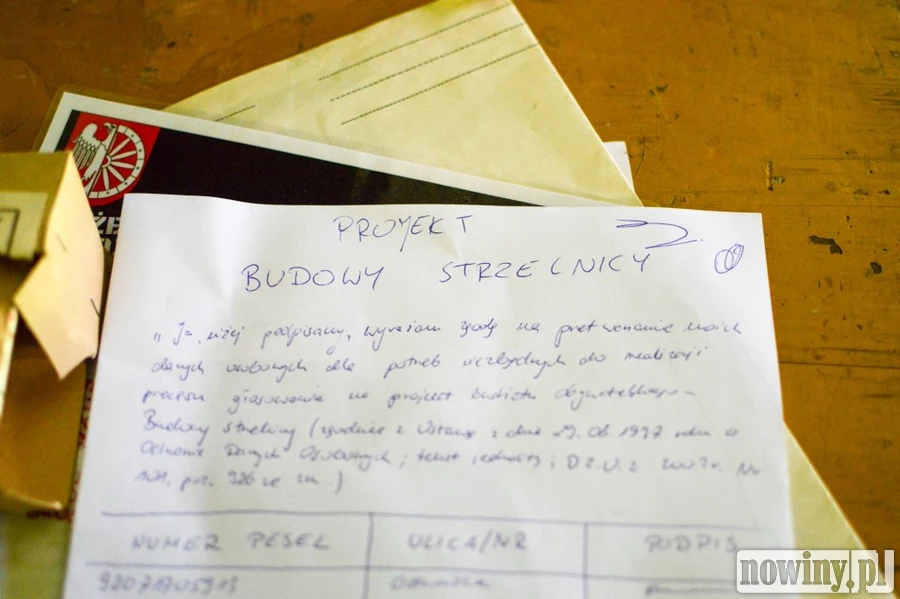 ŻE
PROJEKT
BUDOWY STRZELNICY
„Ja, niżej podpisany, wyrażam zgodę na przetwarzanie moich
danych osobowych dla potrzeb niezbędnych do realizacji
procesu głosowania na projekt budżetu obywatelskiego –
Budowy strzelnicy (zgodnie z Ustawą z dnia 29.08.1997 roku o
Ochronie Danych Osobowych; tekst jednolity: Dz.U. z 2002 r. Nr
101, poz. 926 ze zm.)
NUMER PESEL ULICA/NR PODPIS
nowiny.pl